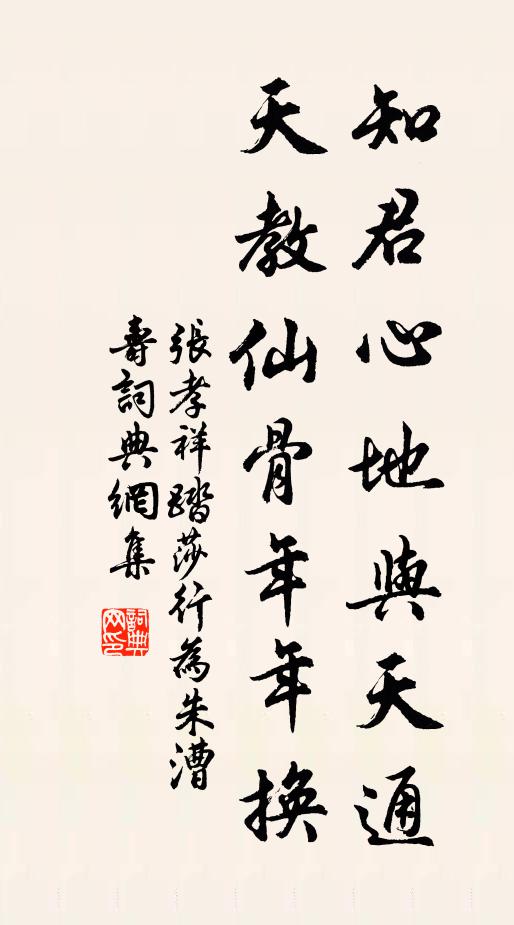 知君心地與天通
天教仙骨年年換
張孝祥踏莎行為朱漕
壽詞典網集
詞典
网印